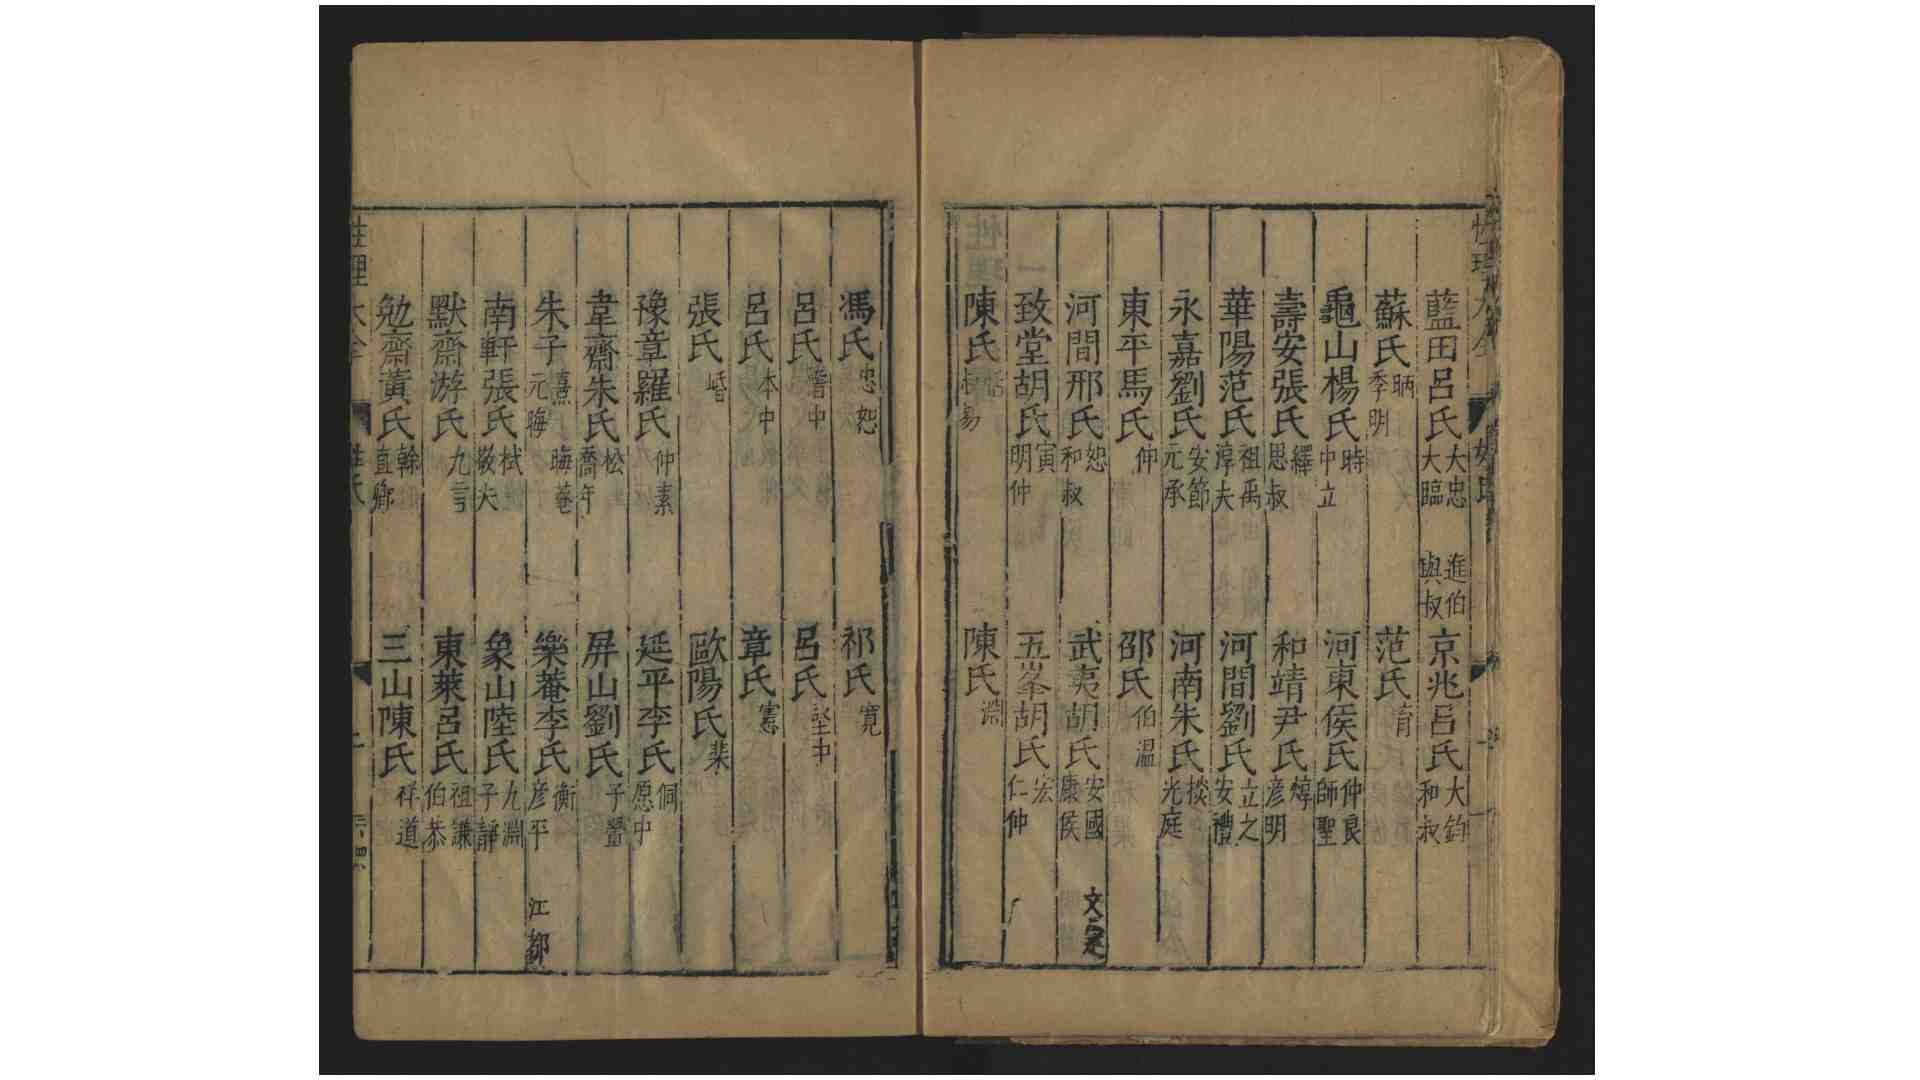 藍田呂氏 大忠 進伯 大臨 與叔 京兆呂氏 大鈞 和叔
蘇氏 昞 季明 范氏 育
龜山楊氏 時 中立 河東侯氏 仲良 師聖
壽安張氏 繹 思叔 和靖尹氏 焞 彥明
華陽范氏 祖禹 淳夫 河間劉氏 立之 安禮
永嘉劉氏 安節 元承 河南朱氏 光庭
東平馬氏 仲 邵氏 伯溫
河間邢氏 恕 和叔 武夷胡氏 安國 康侯 文定
致堂胡氏 寅 明仲 五峯胡氏 宏 仁仲
陳氏 陳氏 淵
馮氏 忠恕 祁氏 寬
呂氏 稽中 呂氏 堅中
呂氏 本中 章氏 憲
張氏 㟭 歐陽氏 棐
豫章羅氏 仲素 延平李氏 侗 愿中
韋齋朱氏 松 喬年 屏山劉氏 子翬
朱子 熹 元晦 晦菴 樂菴李氏 衡 彥平 江都
南軒張氏 栻 敬夫 象山陸氏 九淵 子靜
默齋游氏 九言 東萊呂氏 祖謙 伯恭
勉齋黃氏 榦 直卿 三山陳氏 祥道